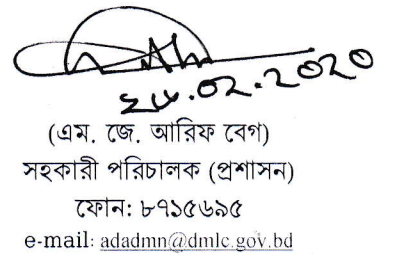 ২৫.০২.২০২০
(এম. জে. আরিফ বেগ)
সহকারী পরিচালক (প্রশাসন)
ফোন: ৮৭১৫৬৯৫
e-mail: adadmn@dmlc.gov.bd